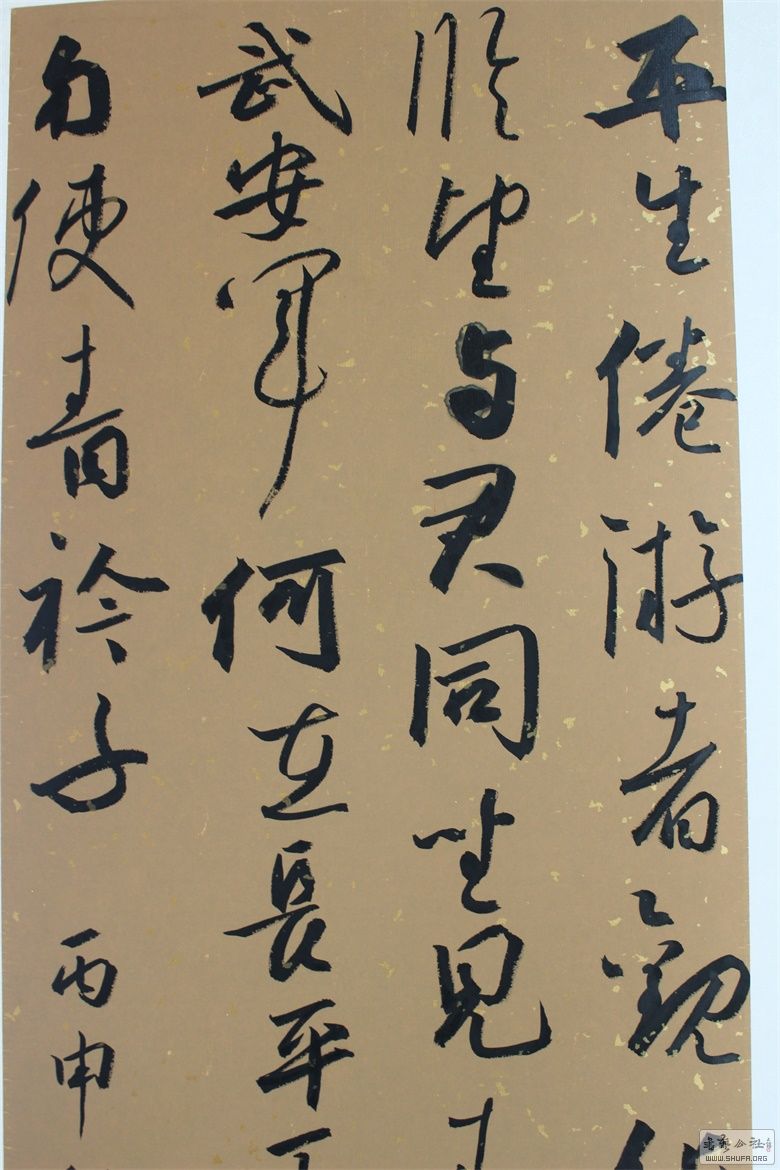 平生倦游者觀
臨望与君同坐見
武安軍何在長平
勿使青衿子 丙申
WWW.SHUFA.ORG